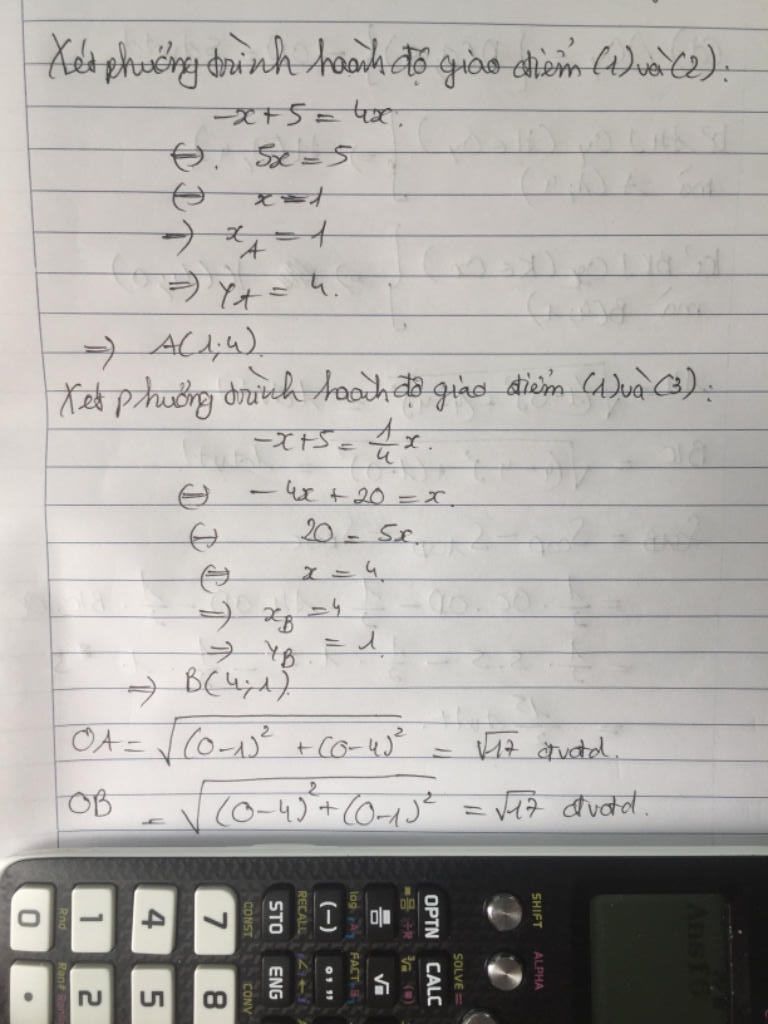 Xét phương trình hoành độ giao điểm (1) và (2):
-x+5 = 4x.
⇔. 5x = 5
⇔ x = 1
⇒ x_A = 1
⇒ y_A = 4.
⇒ A(1;4).
Xét phương trình hoành độ giao điểm (1) và (3):
-x+5 = 1/4 x.
⇔ -4x + 20 = x.
⇔ 20 = 5x.
⇔ x = 4.
⇒ x_B = 4
⇒ y_B = 1.
⇒ B(4;1).
OA = √((0-1)² + (0-4)²) = √17 đvđd.
OB = √((0-4)² + (0-1)²) = √17 đvđd.
SHIFT
ALPHA
OPTN
CALC
SOLVE =
√
(-)
FACT
STO
ENG
RECALL
CONST
CONV
7
8
4
5
1
2
Rnd
Ran#
0
.